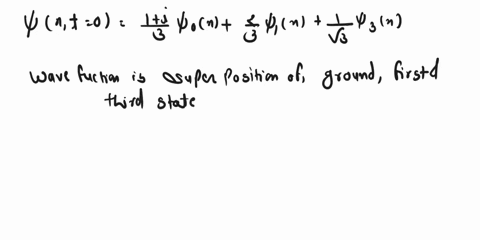 ψ(x, t=0) = (1+i)/3 ψ₀(x) + 2/3 ψ₁(x) + 1/√3 ψ₃(x)
wave fuction is super position of, ground, first d
third state